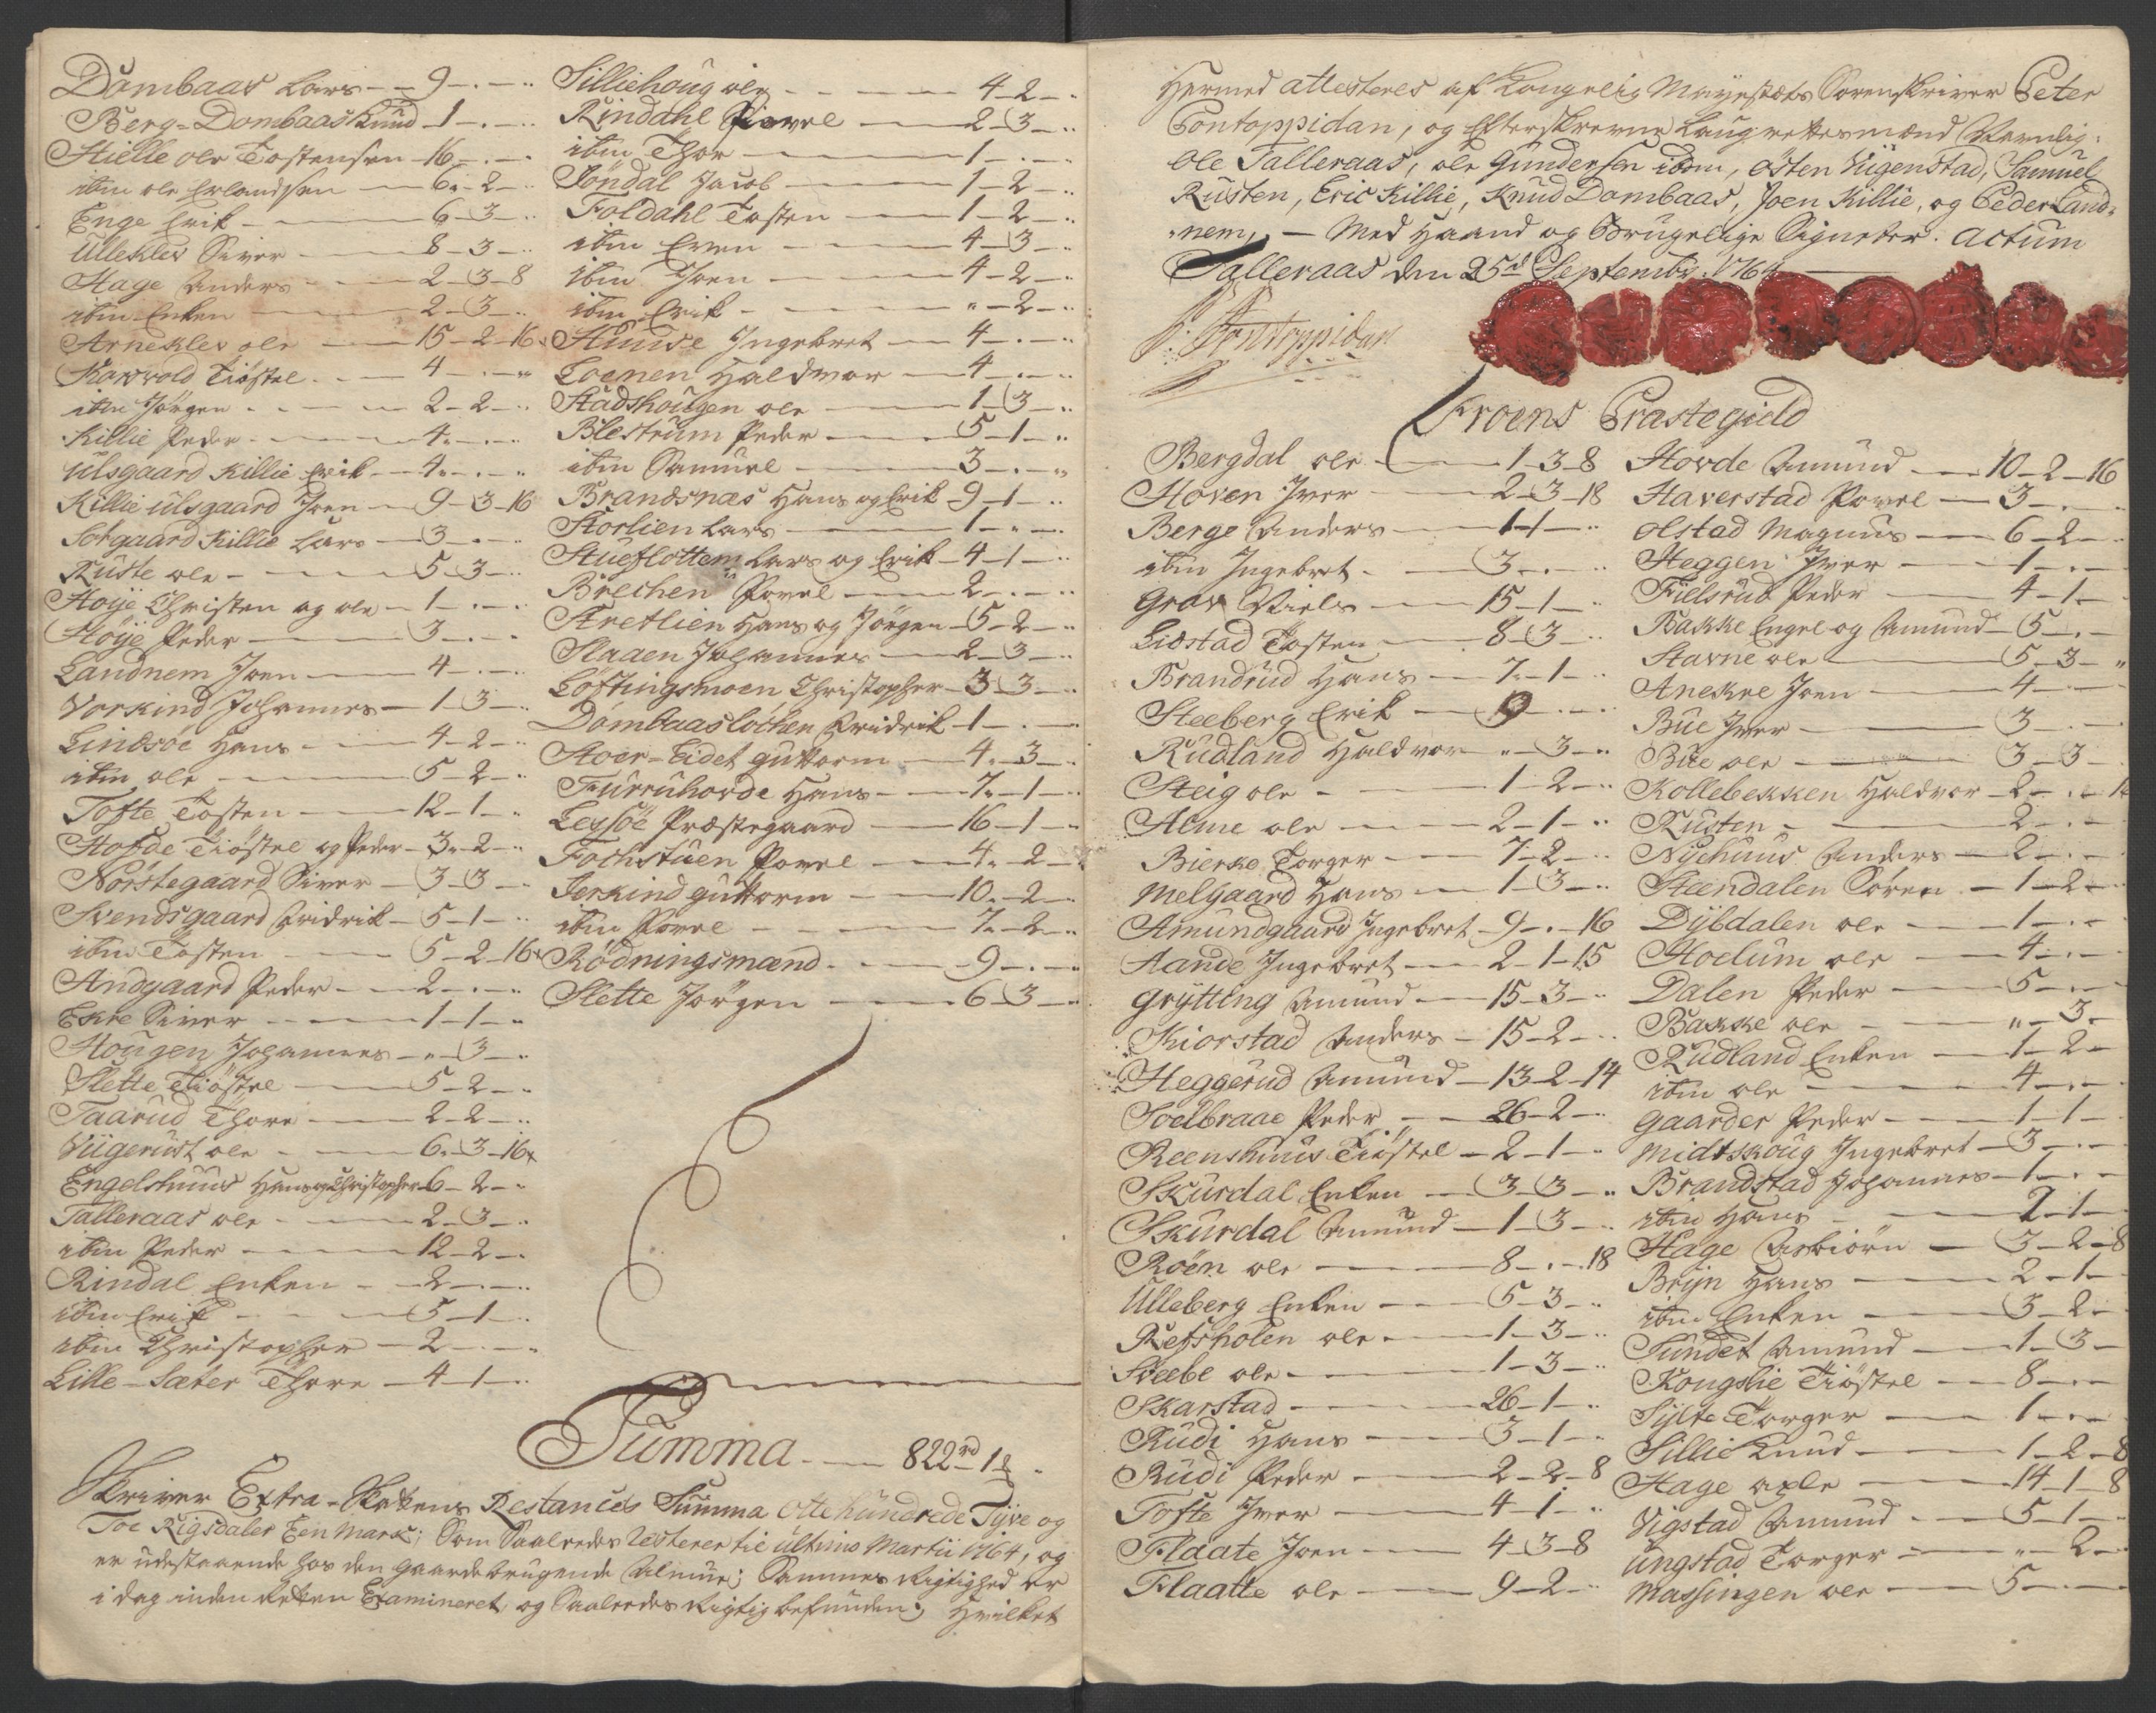 Dombaas Lars - - 9 - . - ..
Berg-Dombaas Knud - 1 - . - ..
Hielle ole Tostensen - 16 - . - ..
ibm ole Erlandsen - 6 - 2 - ..
Enge Erik - 6 - 3 - ..
Ulleklev Siver - 8 - 3 - ..
Hage Anders - 2 - 3 - 8
ibm Enken - 2 - 3 - ..
Arneklev ole - 15 - 2 - 16
Kawold Tiøstel - 4 - . - ..
ibm Jørgen - 2 - 2 - ..
Killie Peder - 4 - . - ..
Ulsgaard Killie Erik - 4 - . - ..
Killie Ulsgaard Joen - 9 - 3 - 16
Sotgaard Killie Lars - 3 - . - ..
Ruste ole - 5 - 3 - ..
Høije Christen og ole - 1 - . - ..
Høije Peder - 3 - . - ..
Landnem Joen - 4 - . - ..
Vorkind Johannes - 1 - 3 - ..
Lindsøe Hans - 4 - 2 - ..
ibm ole - 5 - 2 - ..
Tofte Tosten - 12 - 1 - ..
Hofde Tiøstel og Peder - 3 - 2 - ..
Norstegaard Siver - 3 - 3 - ..
Svendsgaard Fridrik - 5 - 1 - ..
ibm Tosten - 5 - 2 - 16
Andgaard Peder - 2 - . - ..
Ekre Siver - 1 - 1 - ..
Hougen Johannes - " - 3 - ..
Slette Tiøstel - 5 - 2 - ..
Taarud Thore - 2 - 2 - ..
Viigerust ole - 6 - 3 - 16
Engelshuus Hans og Christopher - 6 - 2 - ..
Talleraas ole - 2 - 3 - ..
ibm Peder - 12 - 2 - ..
Rindal Enken - 2 - . - ..
ibm Erik - 5 - 1 - ..
ibm Christopher - 2 - . - ..
Lille-Sæter Thore - 4 - 1 - ..
Silliehoug ole - 4 - 2 - ..
Rindahl Powel - 2 - 3 - ..
ibm Thor - 1 - . - ..
Jøndal Jacob - 1 - 2 - ..
Foldahl Tosten - 1 - 2 - ..
ibm Even - 4 - 3 - ..
ibm Joen - 4 - 2 - ..
ibm Erik - " - 2 - ..
Hunde Ingebret - 4 - . - ..
Loenen Haldvor - 4 - . - ..
Stadshougen ole - 1 - 3 - ..
Blestrum Peder - 5 - 1 - ..
ibm Samuel - 3 - . - ..
Brandsnæs Hans og Erik - 9 - 1 - ..
Storlien Lars - 1 - . - ..
Stueflottem Lars og Erik - 4 - 1 - ..
Brechen Powel - 2 - . - ..
Stretlien Hans og Jørgen - 5 - 2 - ..
Slaaen Johannes - 2 - 3 - ..
Løftingsmoen Christopher - 3 - 3 - ..
Dombaasløchen Fridrik - 1 - . - ..
Hoer-Eidet guttorm - 4 - 3 - ..
Furruhovde Hans - 7 - 1 - ..
Lessøe Præstegaard - 16 - 1 - ..
Fochstuen Powel - 4 - 2 - ..
Jerkind guttorm - 10 - 2 - ..
ibm Powel - 7 - 2 - ..
Rødningsmænd - 9 - . - ..
Slette Jørgen - 6 - 3 - ..
Summa - 822 rd 1
Skriver Extra-Skattens Restances Summa Otte hundrede Tyve og
Toe Rigsdaler Een Mark; Som Saaledes resterer til ultimo Martii 1764, og
er udestaaende hos den gaardebrugende Almue; Sammes Rigtighed er
i dag inden Retten Examineret, og Saaledes Rigtig befunden; Hvilket
Hermed attesteres af Kongelig Mayestæts Sorenskriver Peter
Pontoppidan, og Efterskrevne Laugrettesmænd Nemlig:
Ole Talleraas, ole Gundersen ibm, østen Viigenstad, Samuel
Rusten, Eric Killie, Knud Dombaas, Joen Killie, og Peder Land-
nem, - Med Haand og Brugelige Signeter. Actum
Talleraas den 25de Septembr 1764
P: Pontoppidan
Froens Præstegield
Bergdal ole - 1 - 3 - 8
Hoven Iver - 2 - 3 - 18
Berge Anders - 1 - 1 - ..
ibm Ingebret - 3 - . - ..
Grov Niels - 15 - 1 - ..
Lidstad Tosten - 8 - 3 - ..
Brandrud Hans - 7 - 1 - ..
Steeberg Erik - 9 - . - ..
Rudland Haldvor - " - 3 - ..
Steig ole - 1 - 2 - ..
Alme ole - 2 - 1 - ..
Bierke Torger - 7 - 2 - ..
Melgaard Hans - 1 - 3 - ..
Amundgaard Ingebret - 9 - . - 16
Aande Ingebret - 2 - 1 - 15
Grytting Amund - 15 - 3 - ..
Kiorstad Anders - 15 - 2 - ..
Heggerud Amund - 13 - 2 - 14
Soelbraae Peder - 26 - 2 - ..
Reenshuus Tiøstel - 2 - 1 - ..
Skurdal Enken - 3 - 3 - ..
Skurdal Amund - 1 - 3 - ..
Roen ole - 8 - . - 18
Ulleberg Enken - 5 - 3 - ..
Refsholen ole - 1 - 3 - ..
Steebe ole - 1 - 3 - ..
Skarstad - 26 - 1 - ..
Rudi Hans - 3 - 1 - ..
Rudi Peder - 2 - 2 - 8
Tofte Iver - 4 - 1 - ..
Flaate Joen - 4 - 3 - 8
Flaatte ole - 9 - 2 - ..
Hovde Amund - 10 - 2 - 16
Haverstad Powel - 3 - . -
Olstad Magnus - 6 - 2 -
Heggen Iver - 1 - . -
Fielsrud Peder - 4 - 1 -
Bakke Engel og Amund - 5 - . -
Stavne ole - 5 - 3 - "
Anekre Joen - 4 - . -
Bue Iver - 3 - . -
Bue ole - 3 - 3 -
Kollebekken Haldvor - 2 - . - 1
Rusten - 2 - . -
Nyehuus Anders - 2 - . -
Steendalen Søren - 1 - 2 -
Dybdalen ole - 1 - . -
Hoelum ole - 4 - . -
Dalen Peder - 5 - . -
Bakke ole - " - 3 -
Rudland Enken - 1 - 2 -
ibm ole - 4 - . -
Gaarder Peder - 1 - 1 -
Midtskoug Ingebret - 3 - . -
Brandstad Johannes - 1 - . -
ibm Hans - 2 - 1 -
Hage Asbiørn - 3 - 2 - 8
Bryn Hans - 2 - 1 -
ibm Enken - 3 - 2 -
Sundet Amund - 1 - 3 -
Kongslie Tiøstel - 8 - . -
Sylte Torger - 1 - . -
Sillie Knud - 1 - 2 - 8
Hage ole - 14 - 1 - 8
Vigstad Amund - 5 - 1 -
Ungstad Torger - " - 2 -
Massingen ole - 5 - . -